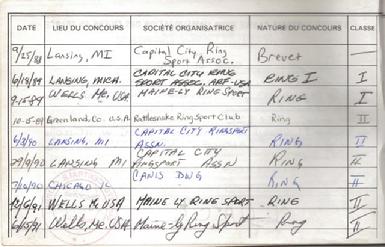 DATE LIEU DU CONCOURS SOCIÉTÉ ORGANISATRICE NATURE DU CONCOURS CLASSE
9/25/88 Lansing, MI Capital City Ring Sport Assoc. Brevet
6/18/89 LANSING, MICH. CAPITAL CITY RING SPORT ASSOC. RING I I
9-15-89 WELLS Me, USA MAINE-LY RING SPORT RING I
10-5-89 Greenland, Co U.S.A. Rattlesnake Ring Sport Club Ring II
6/3/90 LANSING, MI CAPITAL CITY RINGSPORT ASSN. RING II
LANSING MI CAPITAL CITY RINGSPORT ASSN RING II
CHICAGO IL CANIS DWG RING II
WELLS Me USA MAINE LY RING SPORT RING II
6/15/91 Wells, Me. USA Maine-ly Ring Sport Ring II